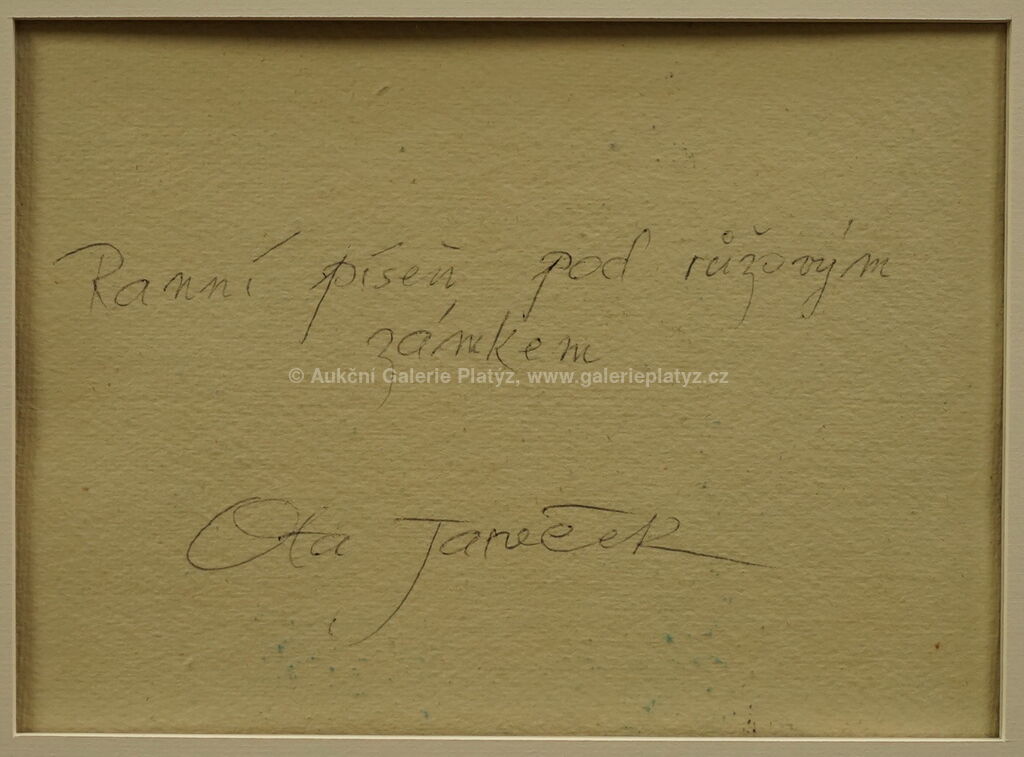 Ranní píseň pod růžovým
zámkem
© Aukční Galerie Platýz, www.galerieplatyz.cz
Ota Janeček